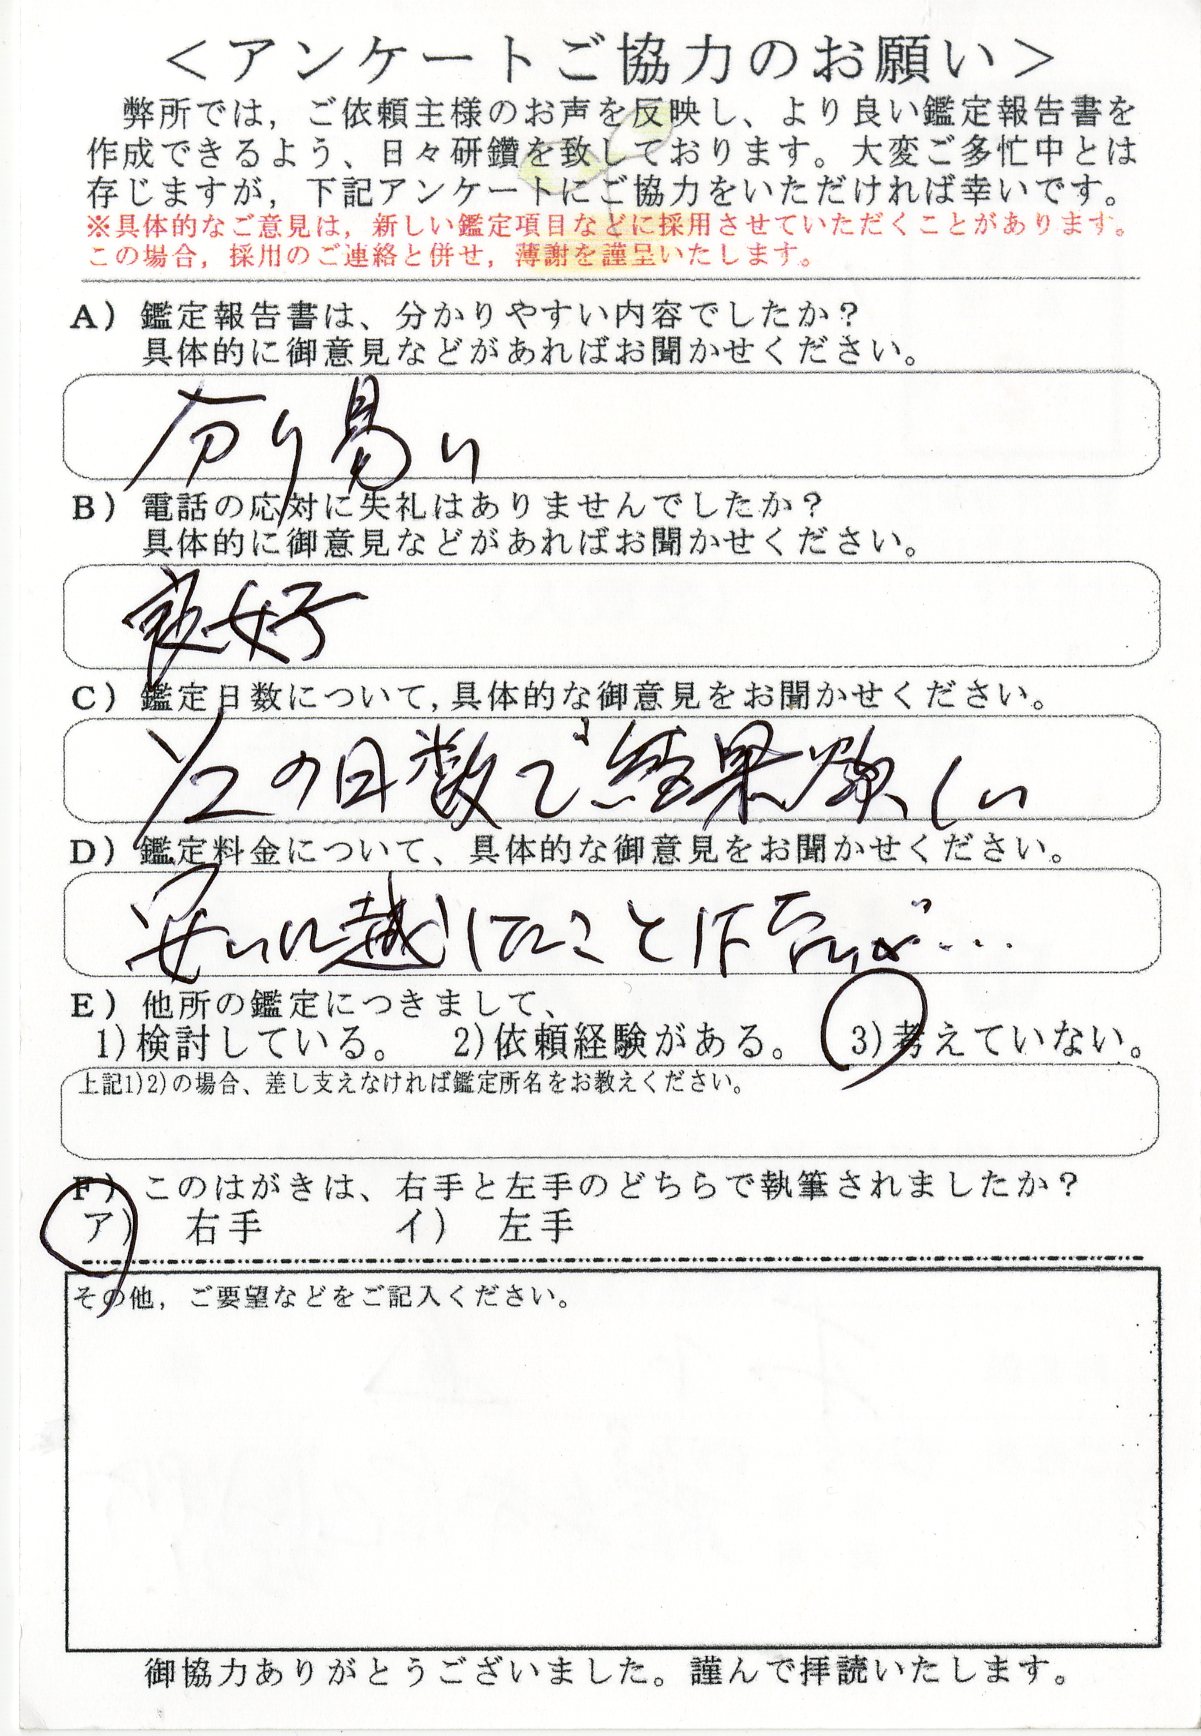 ＜アンケートご協力のお願い＞
弊所では，ご依頼主様のお声を反映し、より良い鑑定報告書を
作成できるよう、日々研鑽を致しております。大変ご多忙中とは
存じますが，下記アンケートにご協力をいただければ幸いです。
※具体的なご意見は，新しい鑑定項目などに採用させていただくことがあります。
この場合，採用のご連絡と併せ，薄謝を謹呈いたします。
A）鑑定報告書は、分かりやすい内容でしたか？
具体的に御意見などがあればお聞かせください。
分り易い
B）電話の応対に失礼はありませんでしたか？
具体的に御意見などがあればお聞かせください。
良好
C）鑑定日数について,具体的な御意見をお聞かせください。
1/2の日数で結果欲しい
D）鑑定料金について、具体的な御意見をお聞かせください。
安いに越したことは
E）他所の鑑定につきまして、
1)検討している。 2)依頼経験がある。 3)考えていない。
上記1)2)の場合、差し支えなければ鑑定所名をお教えください。
F）このはがきは、右手と左手のどちらで執筆されましたか？
ア） 右手 イ） 左手
その他，ご要望などをご記入ください。
御協力ありがとうございました。謹んで拝読いたします。